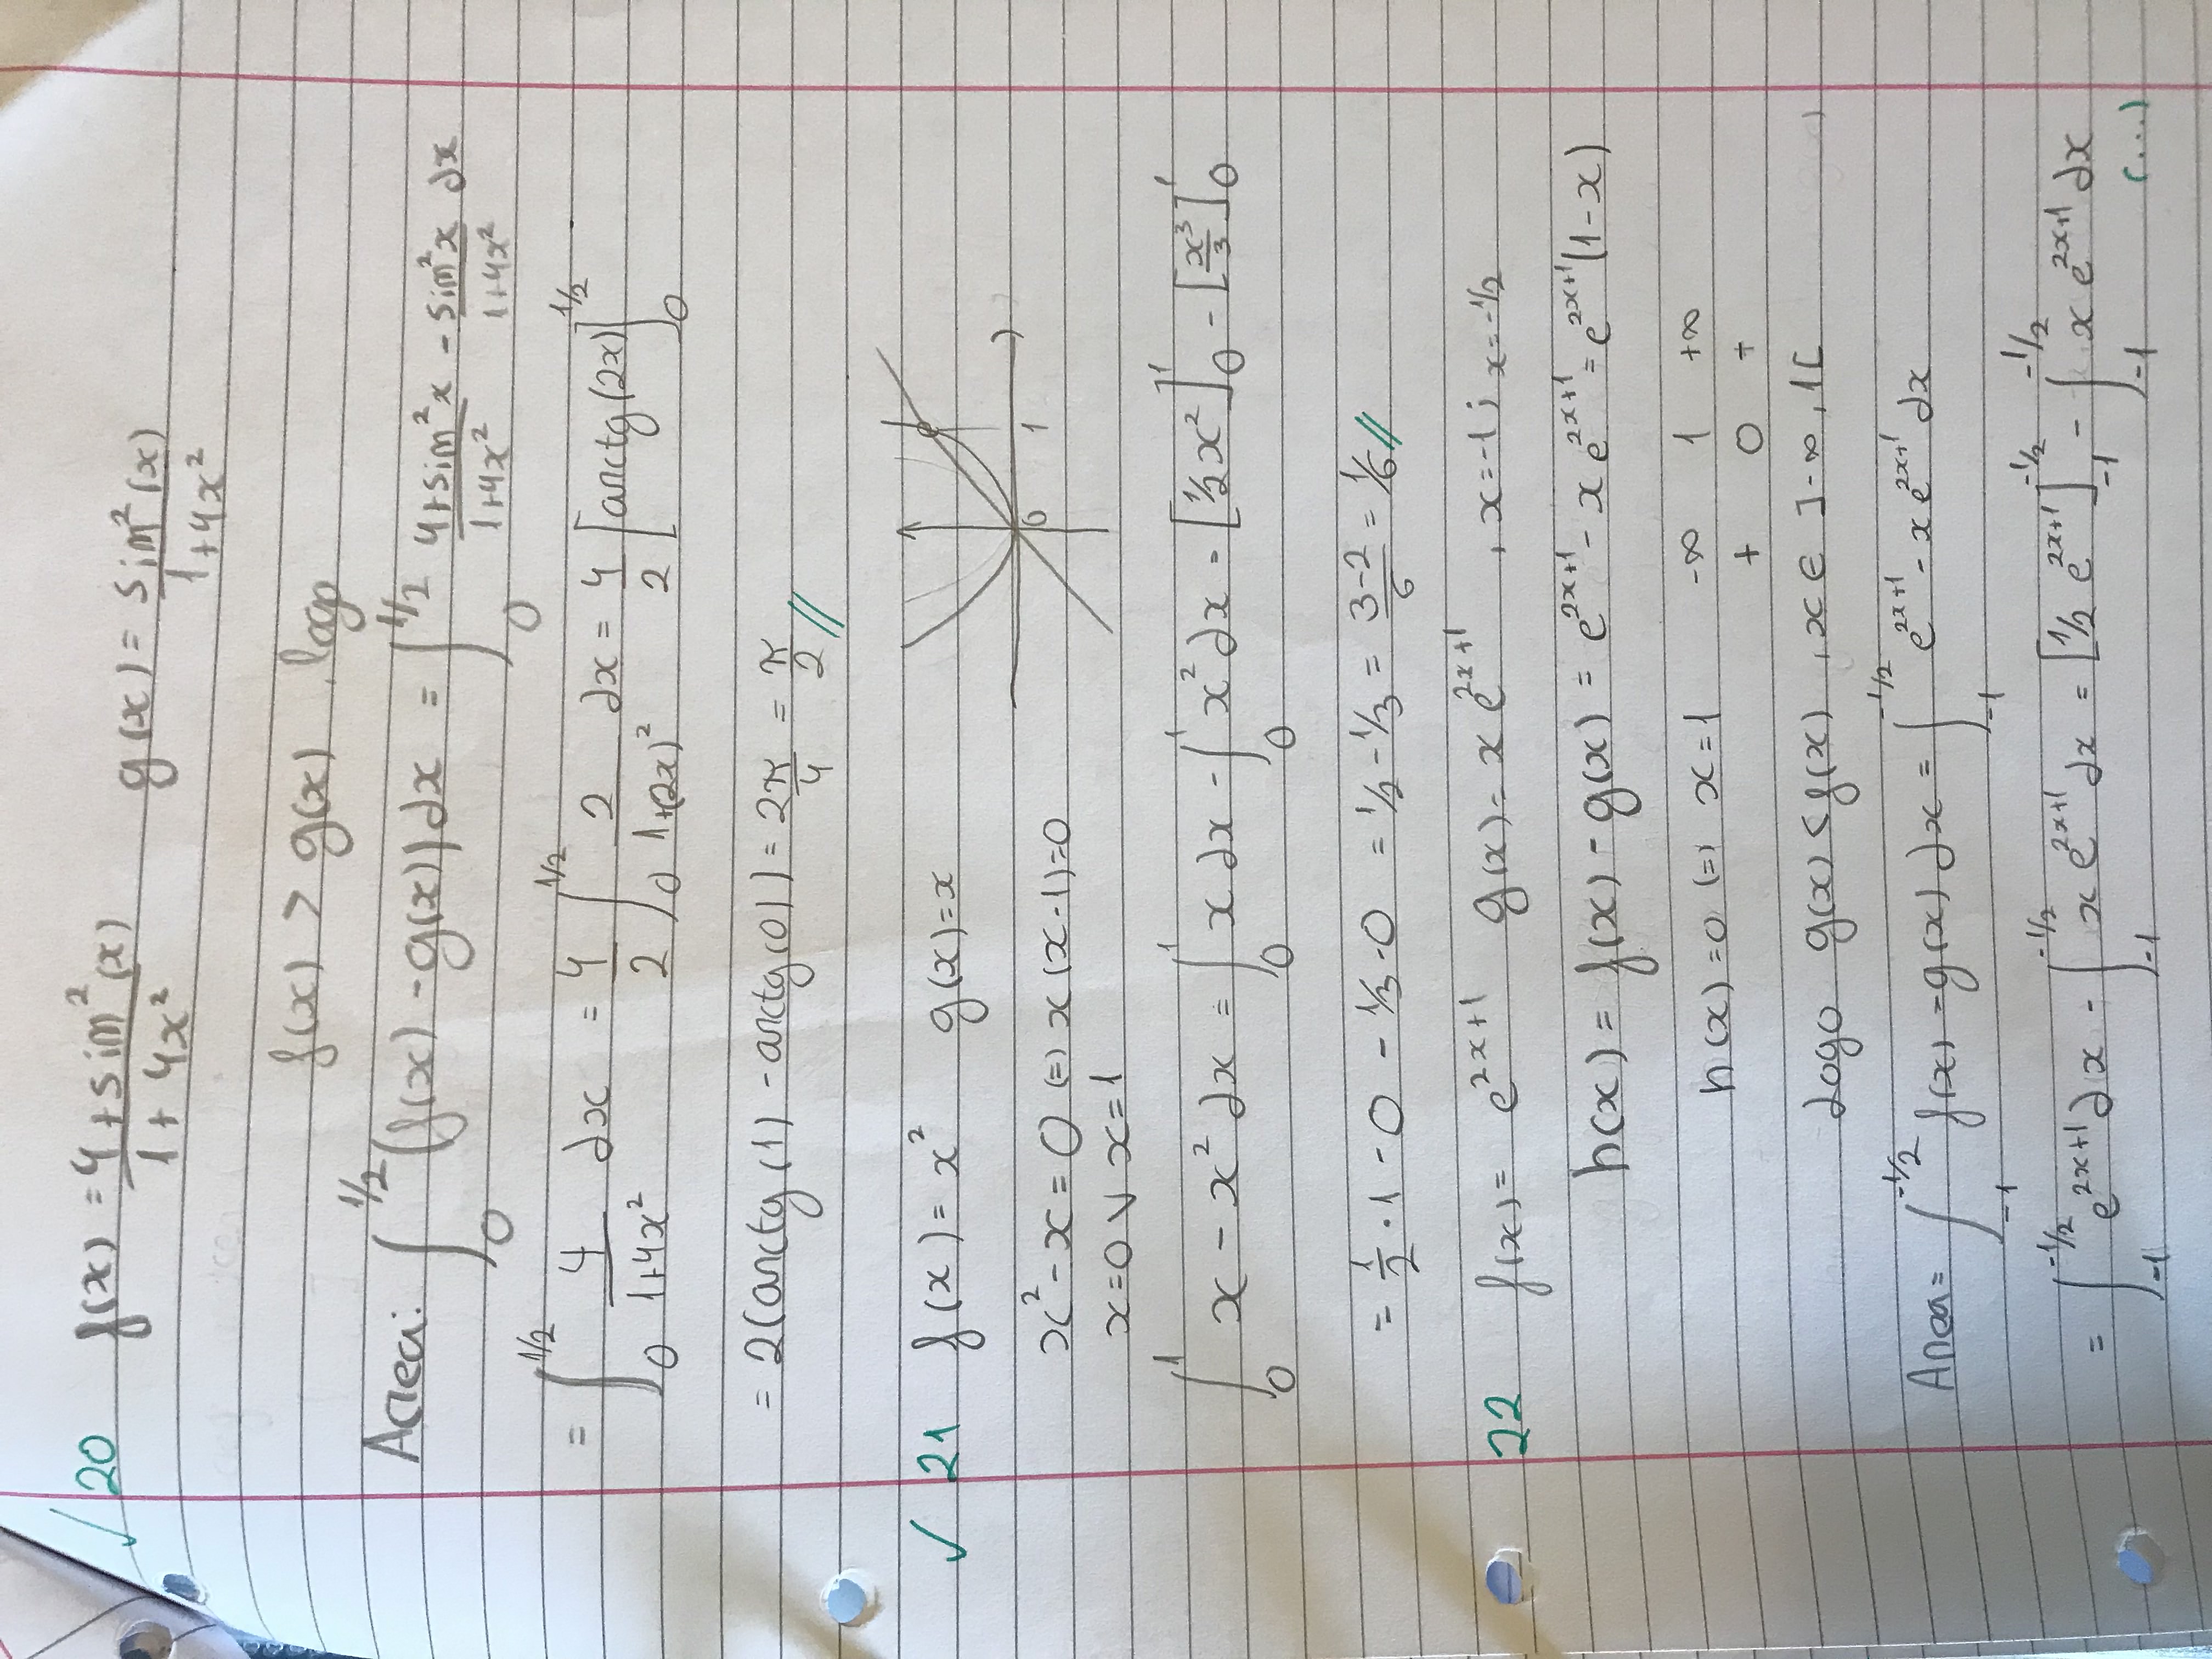 ✓ 20 f(x) = (4+sim²(x))/(1+4x²) g(x) = sim²(x)/(1+4x²)
f(x) > g(x), logo
Area: ∫₀^{1/2} (f(x) - g(x)) dx = ∫₀^{1/2} (4+sim²x)/(1+4x²) - sim²x/(1+4x²) dx
= ∫₀^{1/2} 4/(1+4x²) dx = 4/2 ∫₀^{1/2} 2/(1+(2x)²) dx = 4/2 [arctg(2x)]₀^{1/2}
= 2(arctg(1) - arctg(0)) = 2π/4 = π/2 //
✓ 21 f(x) = x² g(x) = x
x² - x = 0 (=) x(x-1)=0
0 1
x=0 ∨ x=1
∫₀¹ x - x² dx = ∫₀¹ x dx - ∫₀¹ x² dx = [1/2x²]₀¹ - [x³/3]₀¹
= 1/2 · 1 - 0 - 1/3 - 0 = 1/2 - 1/3 = (3-2)/6 = 1/6 //
22 f(x) = e^{2x+1} g(x) = x e^{2x+1} , x=-1 ; x=-1/2
h(x) = f(x) - g(x) = e^{2x+1} - x e^{2x+1} = e^{2x+1}(1-x)
h(x)=0 (=) x=1 -∞ 1 +∞
+ 0 +
Logo g(x) < f(x) , x ∈ ]-∞, 1[
Area = ∫_{-1}^{-1/2} f(x) - g(x) dx = ∫_{-1}^{-1/2} e^{2x+1} - x e^{2x+1} dx
= ∫_{-1}^{-1/2} e^{2x+1} dx - ∫_{-1}^{-1/2} x e^{2x+1} dx = [1/2 e^{2x+1}]_{-1}^{-1/2} - ∫_{-1}^{-1/2} x e^{2x+1} dx
(...)